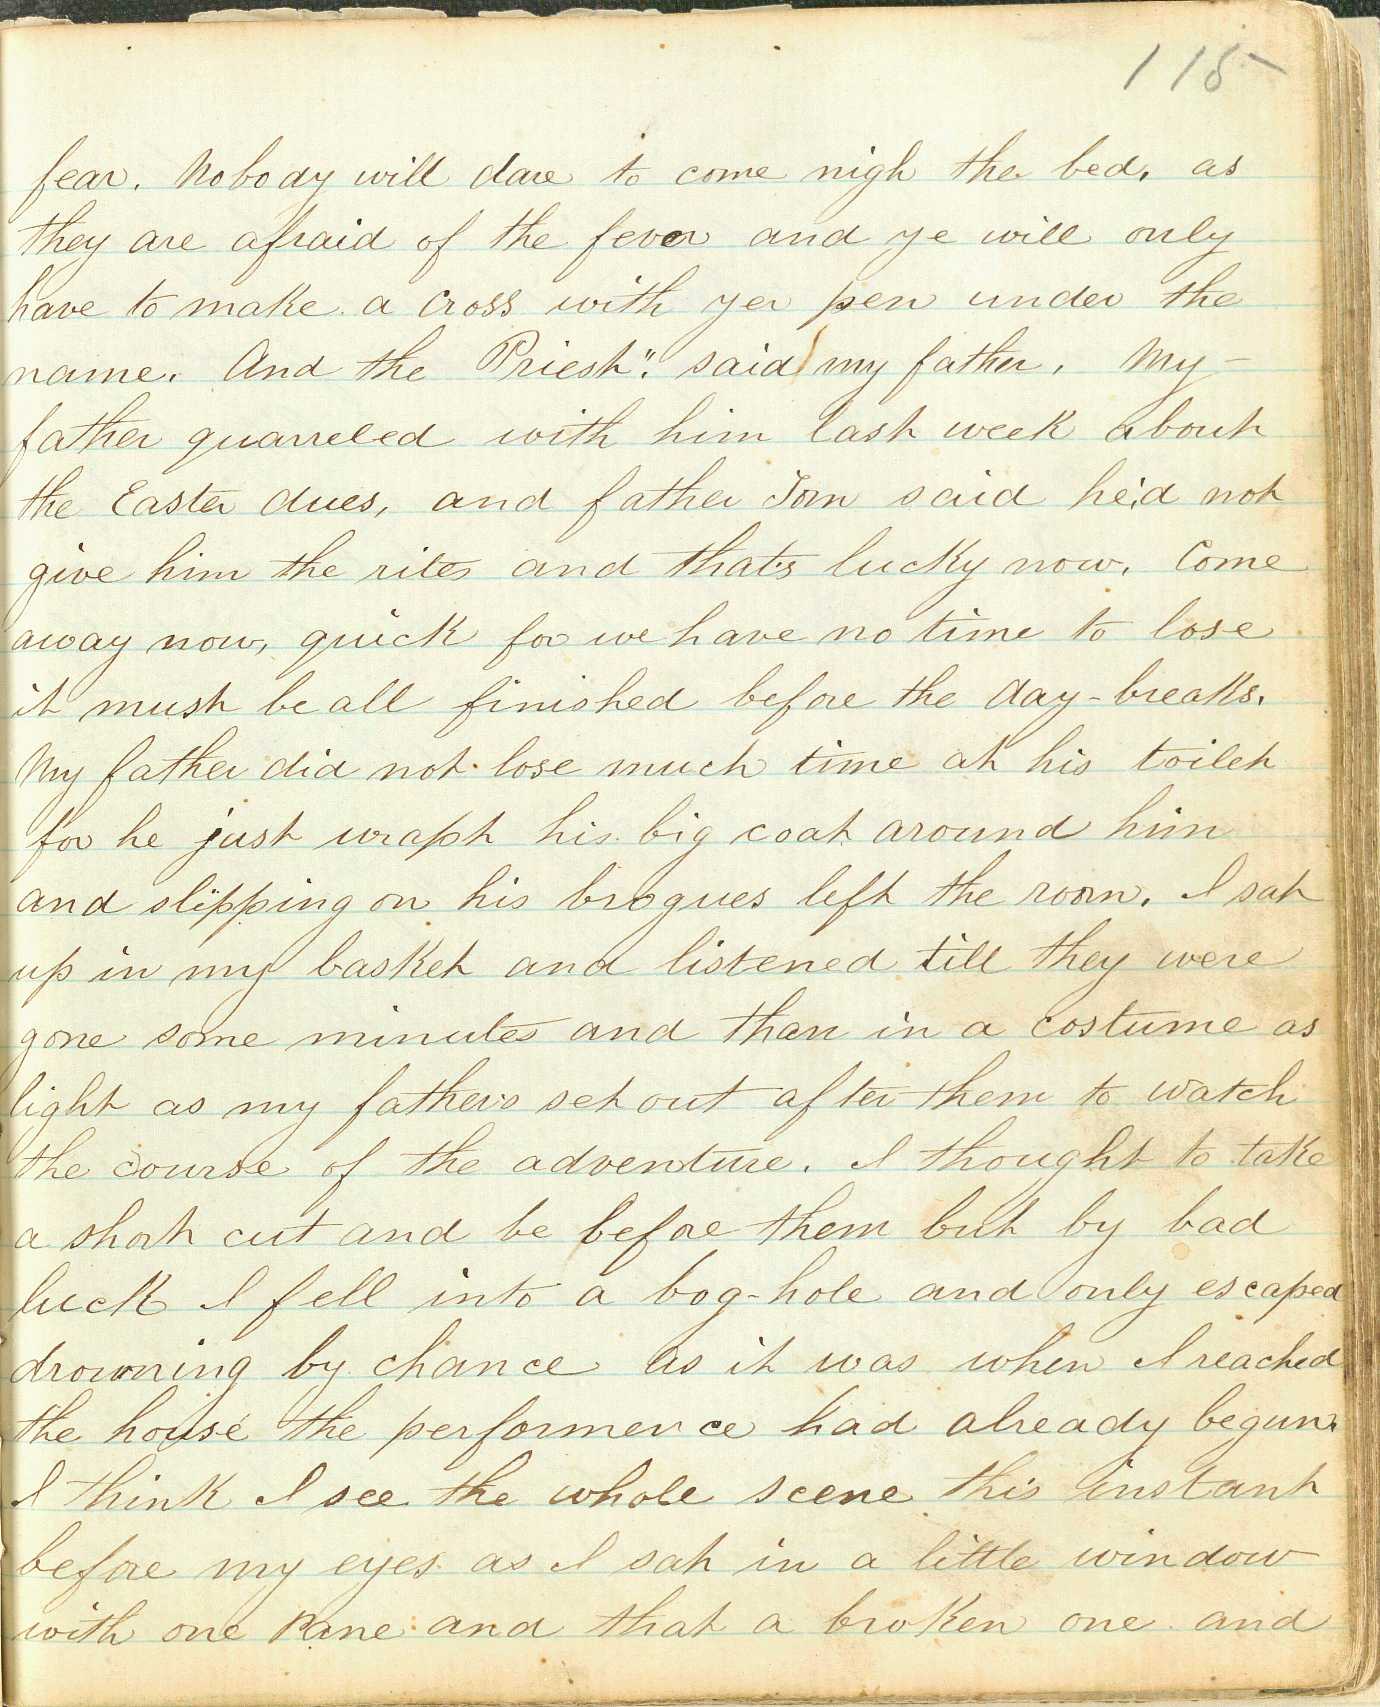 115
fear. Nobody will dare to come nigh the bed, as
they are afraid of the fever and ye will only
have to make a cross with yer pen under the
name. And the Priest". said my father. My
father quarreled with him last week about
the Easter dues, and father Tom said he'd not
give him the rites and that's lucky now. Come
away now, quick for we have no time to lose
it must be all finished before the day-breaks.
My father did not lose much time at his toilet
for he just wrapt his big coat around him
and slipping on his brogues left the room. I sat
up in my basket and listened till they were
gone some minutes and then in a costume as
light as my fathers set out after them to watch
the course of the adventure. I thought to take
a short cut and be before them but by bad
luck I fell into a bog-hole and only escaped
drowning by chance as it was when I reached
the house the performence had already begun.
I think I see the whole scene this instant
before my eyes as I sat in a little window
with one Pane and that a broken one and